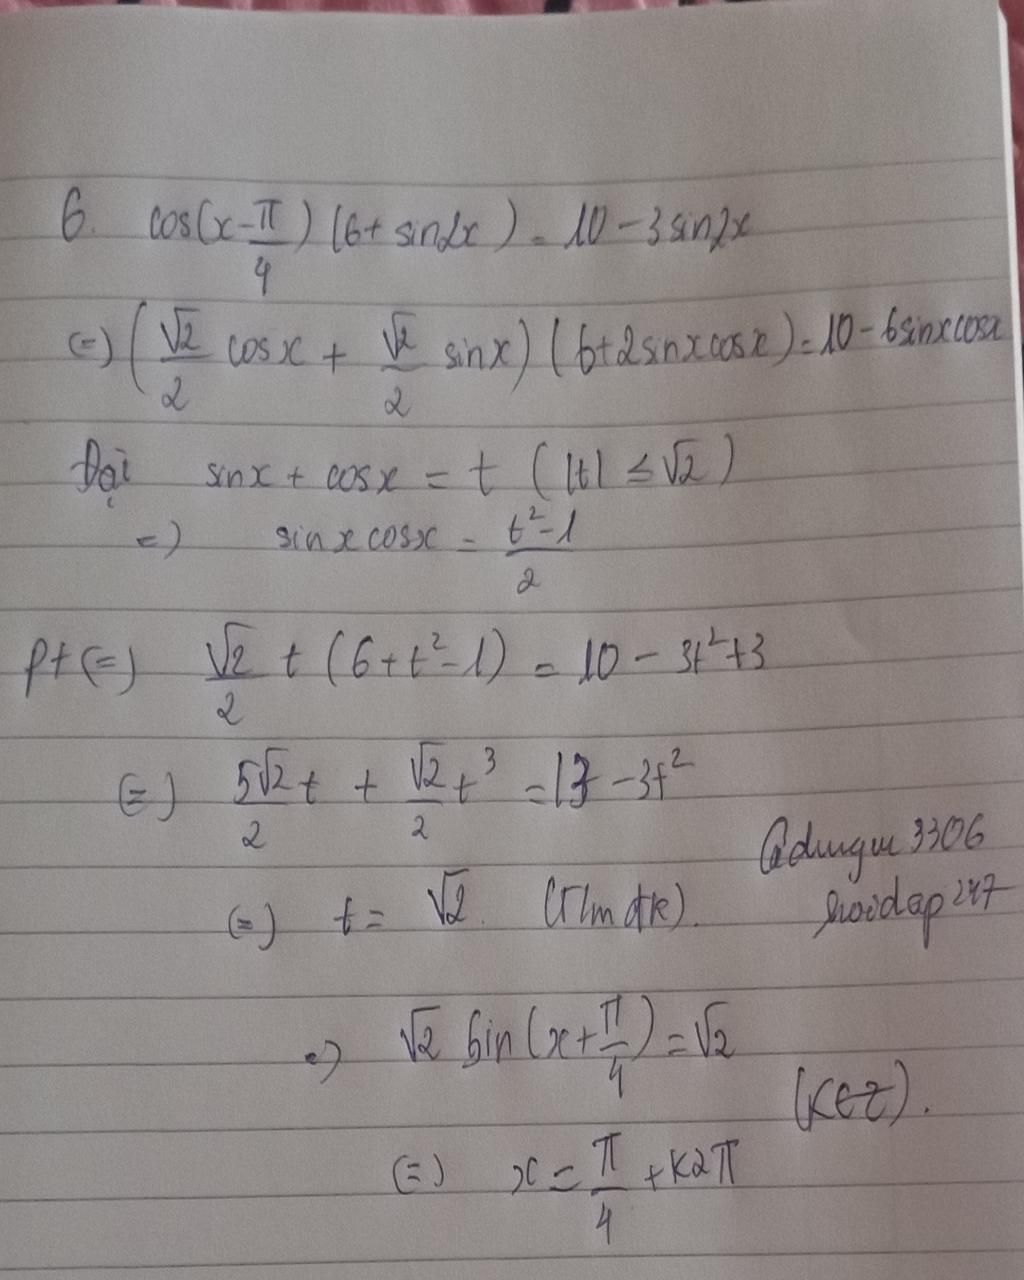 6. cos(x-π/4)(6+ sin2x) = 10 - 3sin2x
(=) (√2/2 cosx + √2/2 sinx)(6+2sinxcosx) = 10 - 6sinxcosx
Đặt sinx + cosx = t (|t| ≤ √2)
=) sinxcosx = t²-1/2
pt (=) √2/2 t (6+t²-1) = 10 - 3t²+3
(=) 5√2/2 t + √2/2 t³ = 13 - 3t²
(=) t = √2 (Tlmđk).
3306
hoidap247
=) √2 sin(x+π/4) = √2
(=) x = π/4 + K2π (K∈Z).